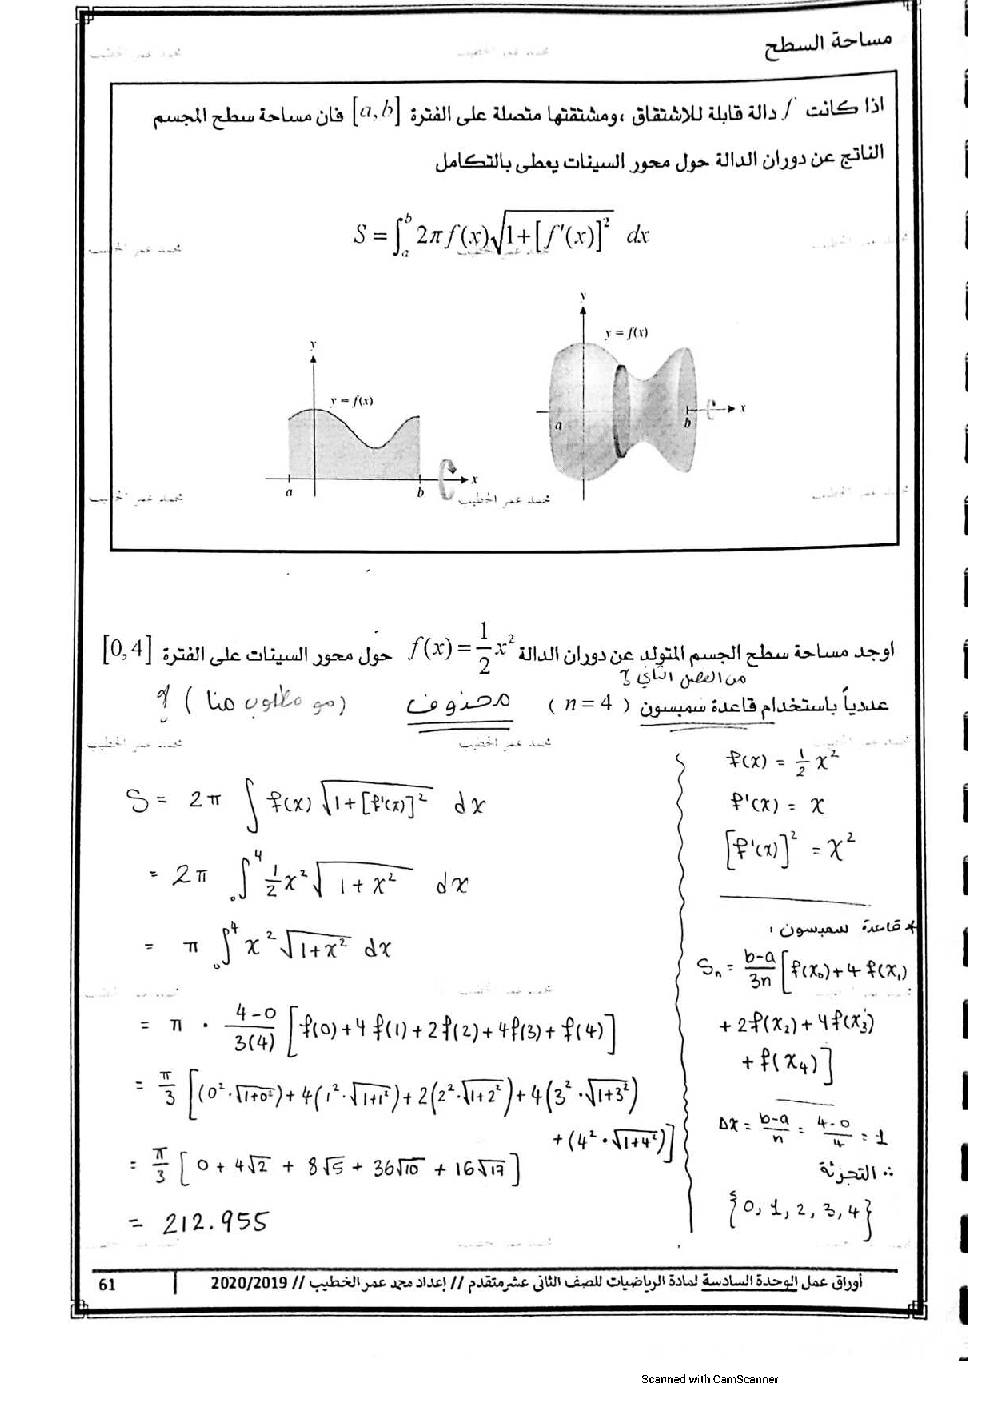 مساحة السطح
اذا كانت f دالة قابلة للاشتقاق ،ومشتقتها متصلة على الفترة [a,b] فان مساحة سطح المجسم
الناتج عن دوران الدالة حول محور السينات يعطى بالتكامل
S = ∫_a^b 2π f(x)√(1+[f'(x)]²) dx
محمد عمر الخطيب
y
y = f(x)
a
b
x
y
y = f(x)
a
b
x
محمد عمر الخطيب
اوجد مساحة سطح الجسم المتولد عن دوران الدالة f(x) = 1/2 x² حول محور السينات على الفترة [0,4]
من الفصل الثاني
عددياً باستخدام قاعدة سمبسون ( n = 4 ) محذوف (مو مطلوب هنا)
محمد عمر الخطيب
S = 2π ∫ f(x) √(1+[f'(x)]²) dx
= 2π ₀∫⁴ 1/2 x² √(1+x²) dx
= π ₀∫⁴ x² √(1+x²) dx
= π · (4-0)/3(4) [f(0)+4f(1)+2f(2)+4f(3)+f(4)]
= π/3 [(0²·√(1+0²))+4(1²·√(1+1²))+2(2²·√(1+2²))+4(3²·√(1+3²))
+(4²·√(1+4²))]
= π/3 [0+4√2+8√5+36√10+16√17]
= 212.955
f(x) = 1/2 x²
f'(x) = x
[f'(x)]² = x²
* قاعدة سمبسون :
Sₙ = (b-a)/3n [f(x₀)+4f(x₁)
+2f(x₂)+4f(x₃)
+f(x₄)]
Δx = (b-a)/n = (4-0)/4 = 1
∴ التجزئة
{0, 1, 2, 3, 4}
أوراق عمل الوحدة السادسة لمادة الرياضيات للصف الثاني عشر متقدم // إعداد محمد عمر الخطيب // 2020/2019
61
Scanned with CamScanner